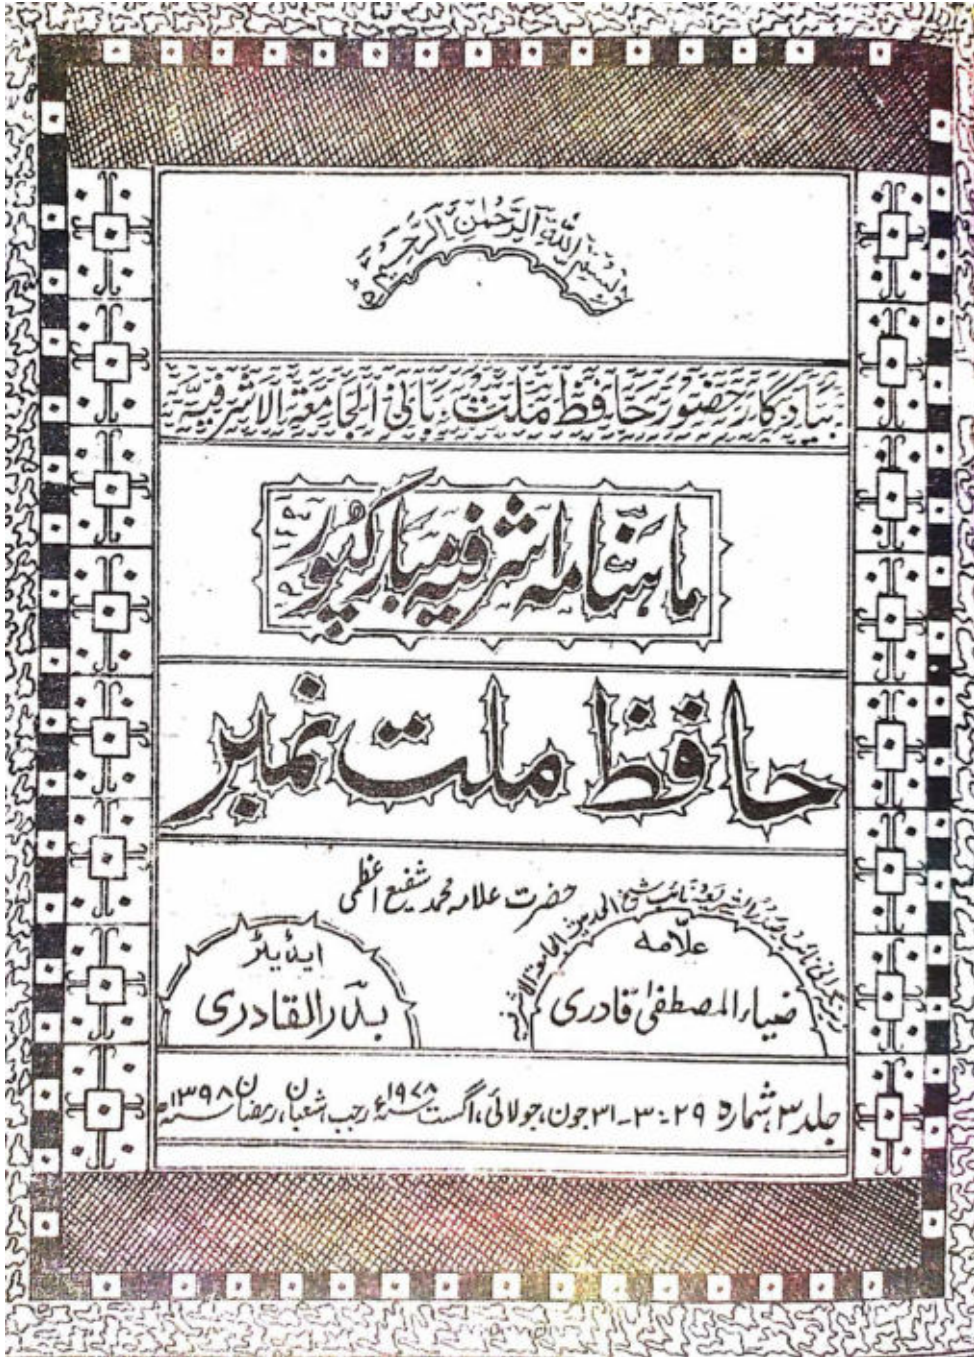 بسم اللہ الرحمٰن الرحیم
بیادگار حضور حافظ ملت بانی الجامعۃ الاشرفیہ
ماہنامہ اشرفیہ مبارکپور
حافظ ملت نمبر
حضرت علامہ محمد شفیع اعظمی
علامہ
ضیاء المصطفیٰ قادری
ایڈیٹر
بدر القادری
جلد ۳، شمارہ ۲۹-۳۰-۳۱ جون، جولائی، اگست ۱۹۷۸ء رجب، شعبان، رمضان ۱۳۹۸ھ